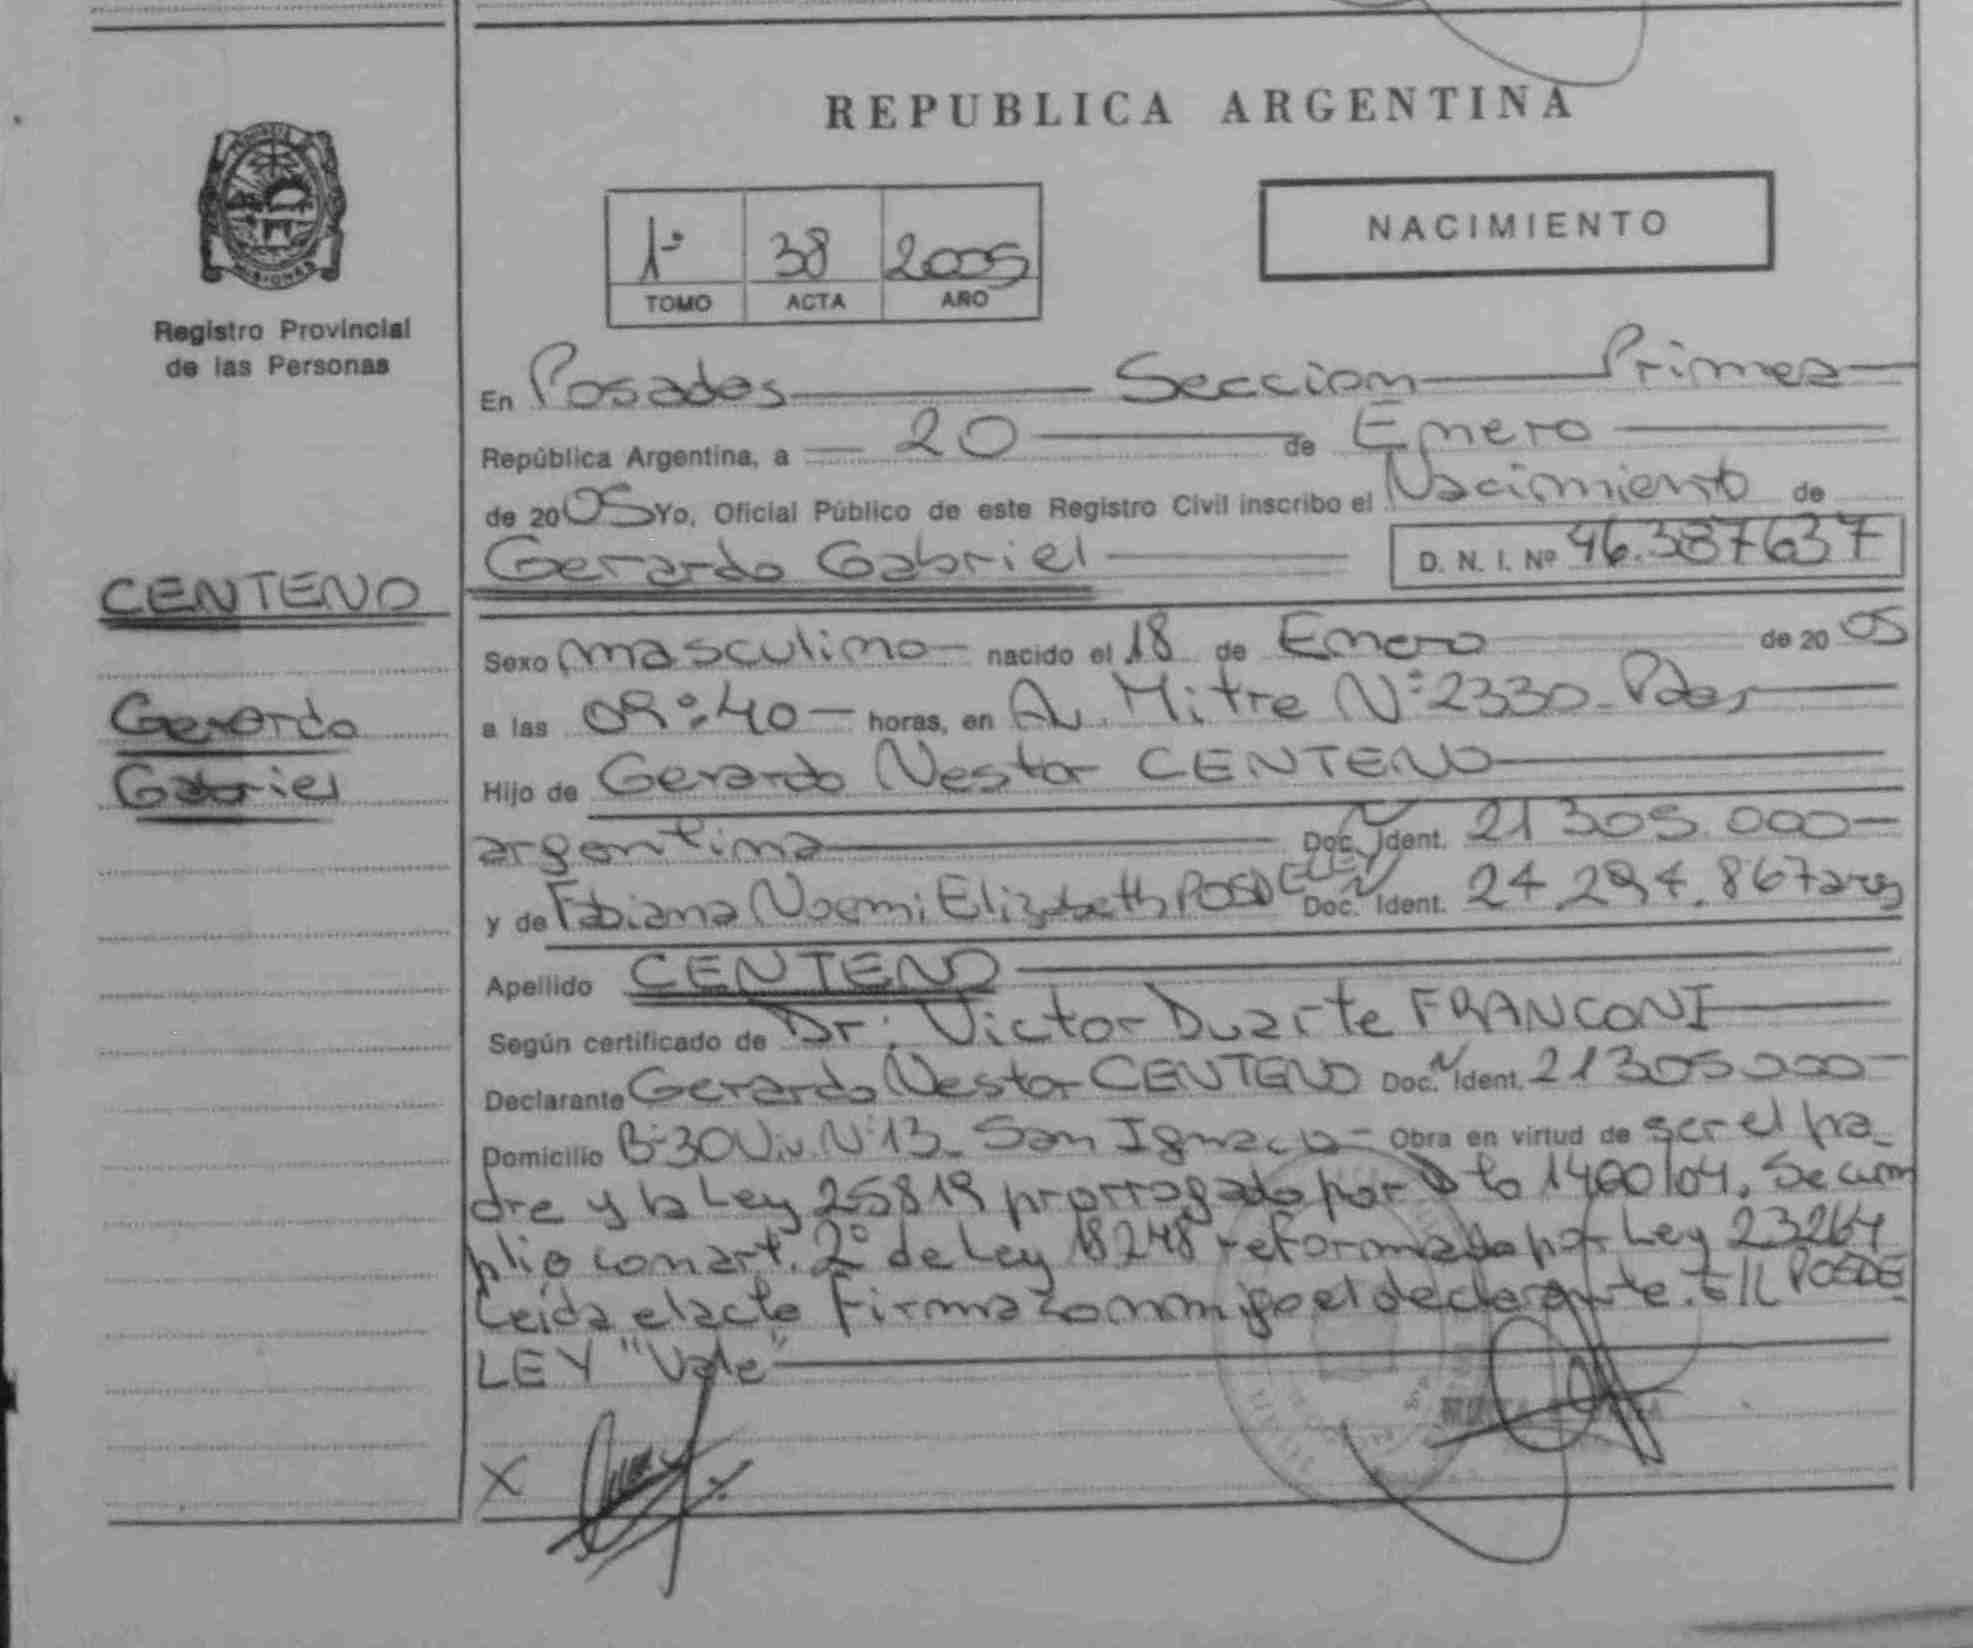 REPUBLICA ARGENTINA
MISIONES
Registro Provincial
de las Personas
1º 38 2005
TOMO ACTA AÑO
NACIMIENTO
En Posadas Seccion Primera
República Argentina, a 20 de Enero
de 2005 Yo, Oficial Público de este Registro Civil inscribo el Nacimiento de
Gerardo Gabriel D. N. I. Nº 46.387637
CENTENO
Gerardo
Gabriel
Sexo masculino nacido el 18 de Enero de 2005
a las 09:40 horas, en Av. Mitre Nº 2330 - Pdas
Hijo de Gerardo Nestor CENTENO
argentina Doc. Ident. 21305.000
y de Fabiana Noemi Elizabeth POSDELEY Doc. Ident. 24.294.867 arg
Apellido CENTENO
Según certificado de Dr. Victor Duarte FRANCONI
Declarante Gerardo Nestor CENTENO Doc. Ident. 21305000
Domicilio Bº 30 Viv. Nº 13 - San Ignacio - Obra en virtud de ser el pa-
dre y la Ley 25819 prorrogado por Dto 1400/04. Se cum
plio con art. 2º de Ley 18248 reformada por Ley 23264
Leida el acta firma conmigo el declarante. E/L POSDE
LEY "Vale"
X